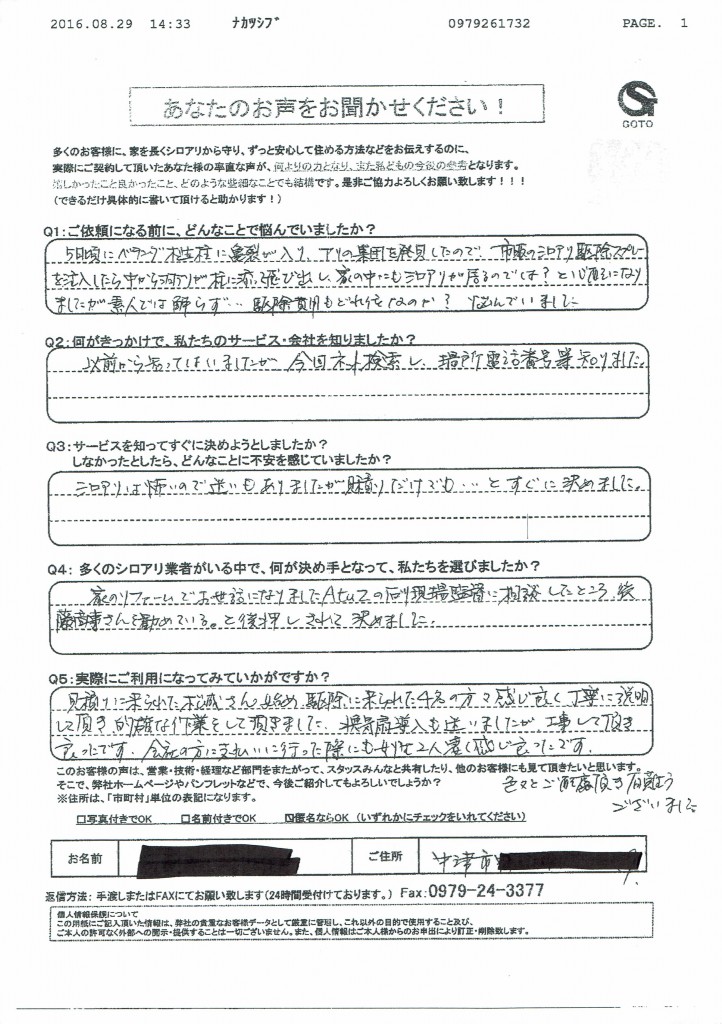 2016.08.29 14:33 ﾅｶﾂｼﾌﾞ 0979261732 PAGE. 1
あなたのお声をお聞かせください！
GOTO
多くのお客様に、家を長くシロアリから守り、ずっと安心して住める方法などをお伝えするのに、
実際にご契約して頂いたあなた様の率直な声が、何よりの力となり、また私どもの今後の参考となります。
嬉しかったこと良かったこと、どのような些細なことでも結構です。是非ご協力よろしくお願い致します！！！
（できるだけ具体的に書いて頂けると助かります！）
Q1：ご依頼になる前に、どんなことで悩んでいましたか？
5月頃にベランダ木製柱に亀裂が入り、アリの集団を発見したので、市販のシロアリ駆除スプレー
を注入したら中から羽アリが 飛び出し、家の中にもシロアリが居るのでは？と心配になり
ましたが素人では解らず… 駆除費用もどれ位なのか？ 悩んでいました
Q2：何がきっかけで、私たちのサービス・会社を知りましたか？
以前から知ってはいましたが、今回ネット検索し、場所電話番号等知りました。
Q3：サービスを知ってすぐに決めようとしましたか？
しなかったとしたら、どんなことに不安を感じていましたか？
シロアリは怖いので迷いもありましたが見積りだけでも…とすぐに決めました。
Q4：多くのシロアリ業者がいる中で、何が決め手となって、私たちを選びましたか？
家のリフォームでお世話になりました 現場監督に相談したところ、後
藤商事さんを勧めている。と後押しされて決めました。
Q5：実際にご利用になってみていかがですか？
見積りに来られた さん始め、駆除に来られた4名の方々感じ良く丁寧に説明
して頂き的確な作業をして頂きました。換気扇導入も迷いましたが工事して頂き
良かったです。会社の方に支払いに行った際にも女性2人凄く感じ良かったです。
色々とご配慮頂き有難う
ございました
このお客様の声は、営業・技術・経理など部門をまたがって、スタッスみんなと共有したり、他のお客様にも見て頂きたいと思います。
そこで、弊社ホームページやパンフレットなどで、今後ご紹介してもよろしいでしょうか？
※住所は、「市町村」単位の表記になります。
□写真付きでOK □名前付きでOK ☑匿名ならOK （いずれかにチェックをいれてください）
お名前 ご住所 中津市
返信方法：手渡しまたはFAXにてお願い致します（24時間受付けております。） Fax：0979-24-3377
個人情報保護について
この用紙にご記入頂いた情報は、弊社の貴重なお客様データとして厳重に管理し、これ以外の目的で使用すること及び、
ご本人の許可なく外部への開示・提供することは一切ございません。また、個人情報はご本人様からのお申出により訂正・削除致します。